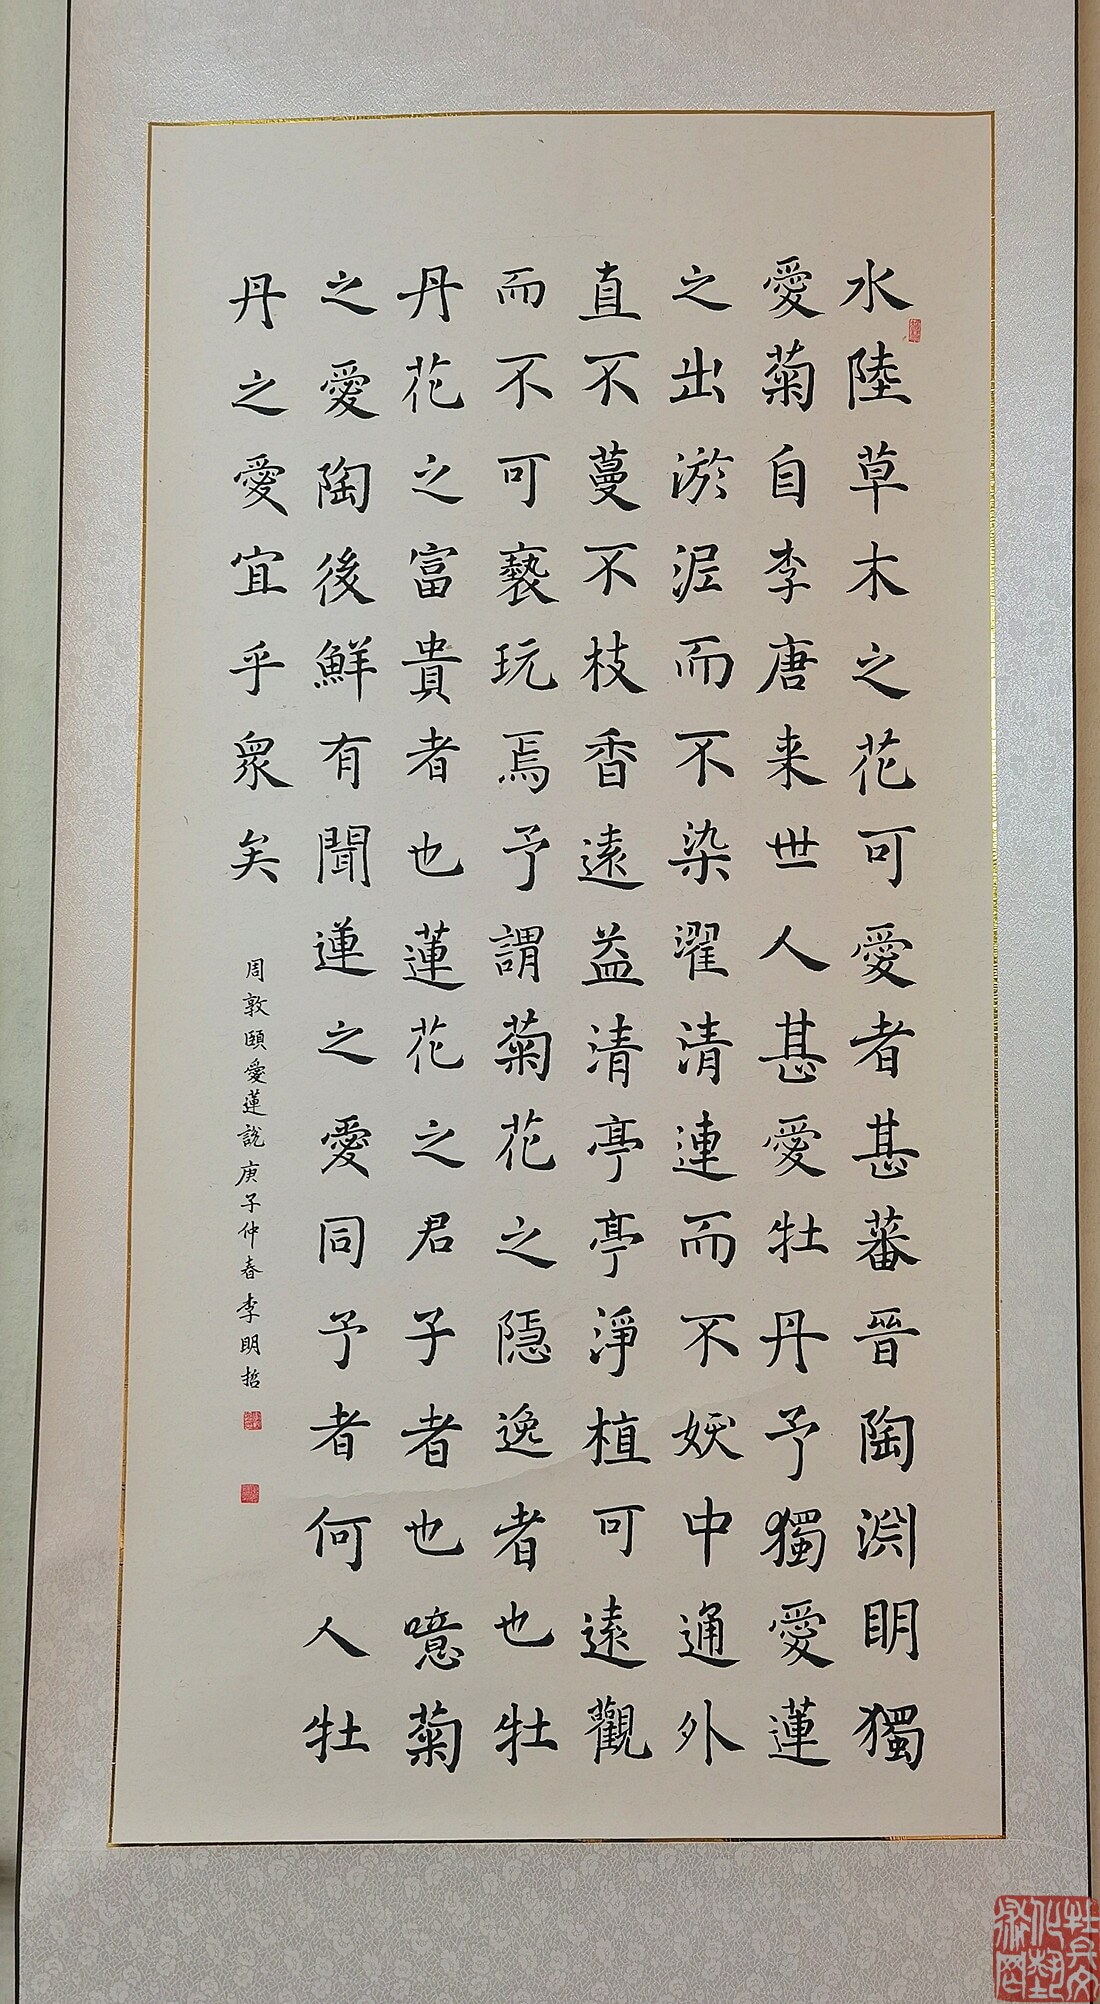 水陸草木之花可愛者甚蕃晉陶淵明獨
愛菊自李唐来世人甚愛牡丹予獨愛蓮
之出淤泥而不染濯清連而不妖中通外
直不蔓不枝香遠益清亭亭淨植可遠觀
而不可褻玩焉予謂菊花之隱逸者也牡
丹花之富貴者也蓮花之君子者也噫菊
之愛陶後鮮有聞蓮之愛同予者何人牡
丹之愛宜乎衆矣
周敦頤愛蓮說庚子仲春李明哲